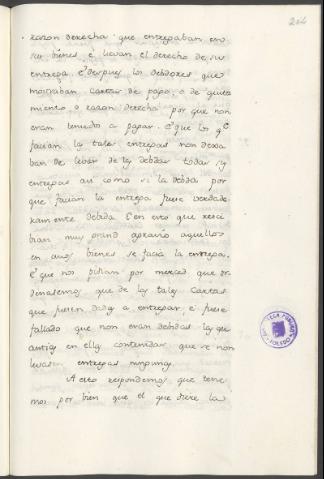 204
razon derecha que entregaban en
sus bienes, e lievan el derecho de su
entrega, e despues los debdores que
mostraban cartas de pago, o de quita
miento o razon derecha por que non
eran tenudos a pagar. E que los qe
facian las tales entregas non dexa
ban de levar de las debdas todas sus
entregas asi como si la debda por
que facian la entrega fuese verdade
ramente debida. E en esto que resce
bian muy grand agravio aquellos
en cuyos bienes se facia la entrega.
E que nos pidian por merced que or
denasemos que de las tales cartas
que fuesen dadas a entregar, e fuese
fallado que non eran debidas las qu
antias en ellas contenidas que se non
levasen entregas ningunas.
A esto respondemos que tene
mos por bien que el que diere la
BIBLIOTECA PUBLICA
TOLEDO